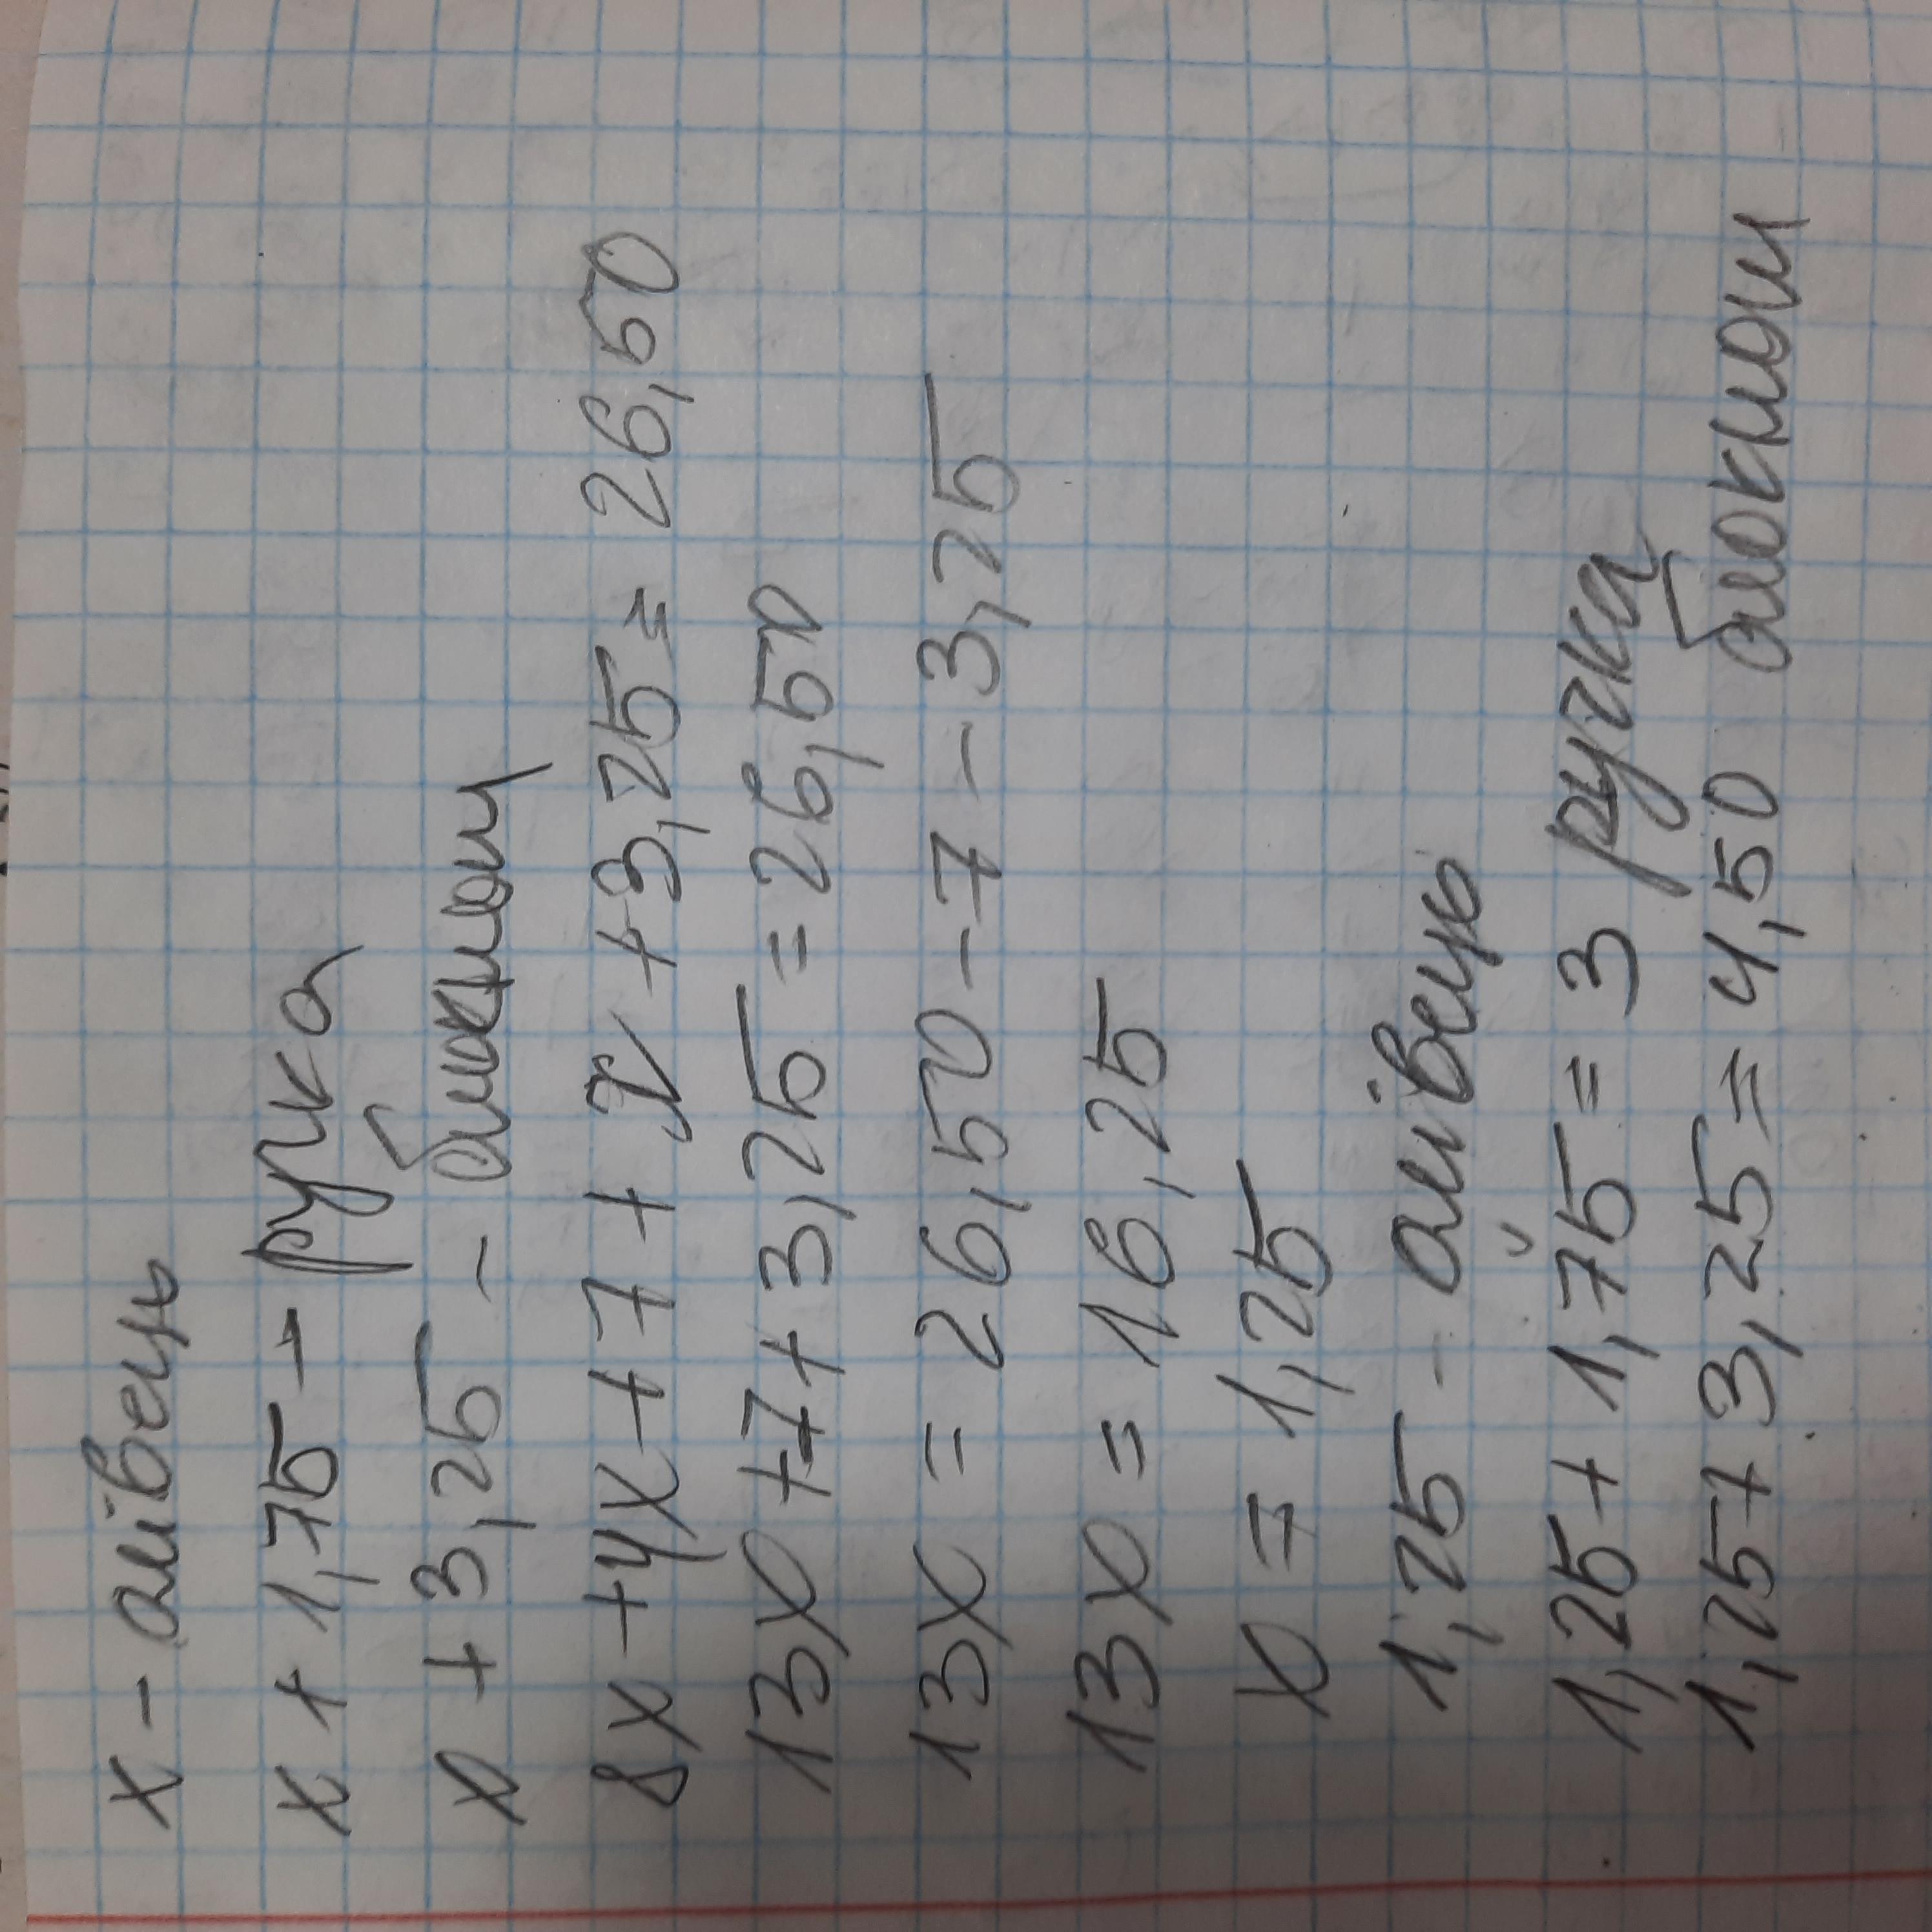 x - олівець
x + 1,75 - ручка
x + 3,25 - блокнот
8x + 4x + 7 + x + 3,25 = 26,50
13x + 7 + 3,25 = 26,50
13x = 26,50 - 7 - 3,25
13x = 16,25
x = 1,25
1,25 - олівець
1,25 + 1,75 = 3 ручка
1,25 + 3,25 = 4,50 блокнот